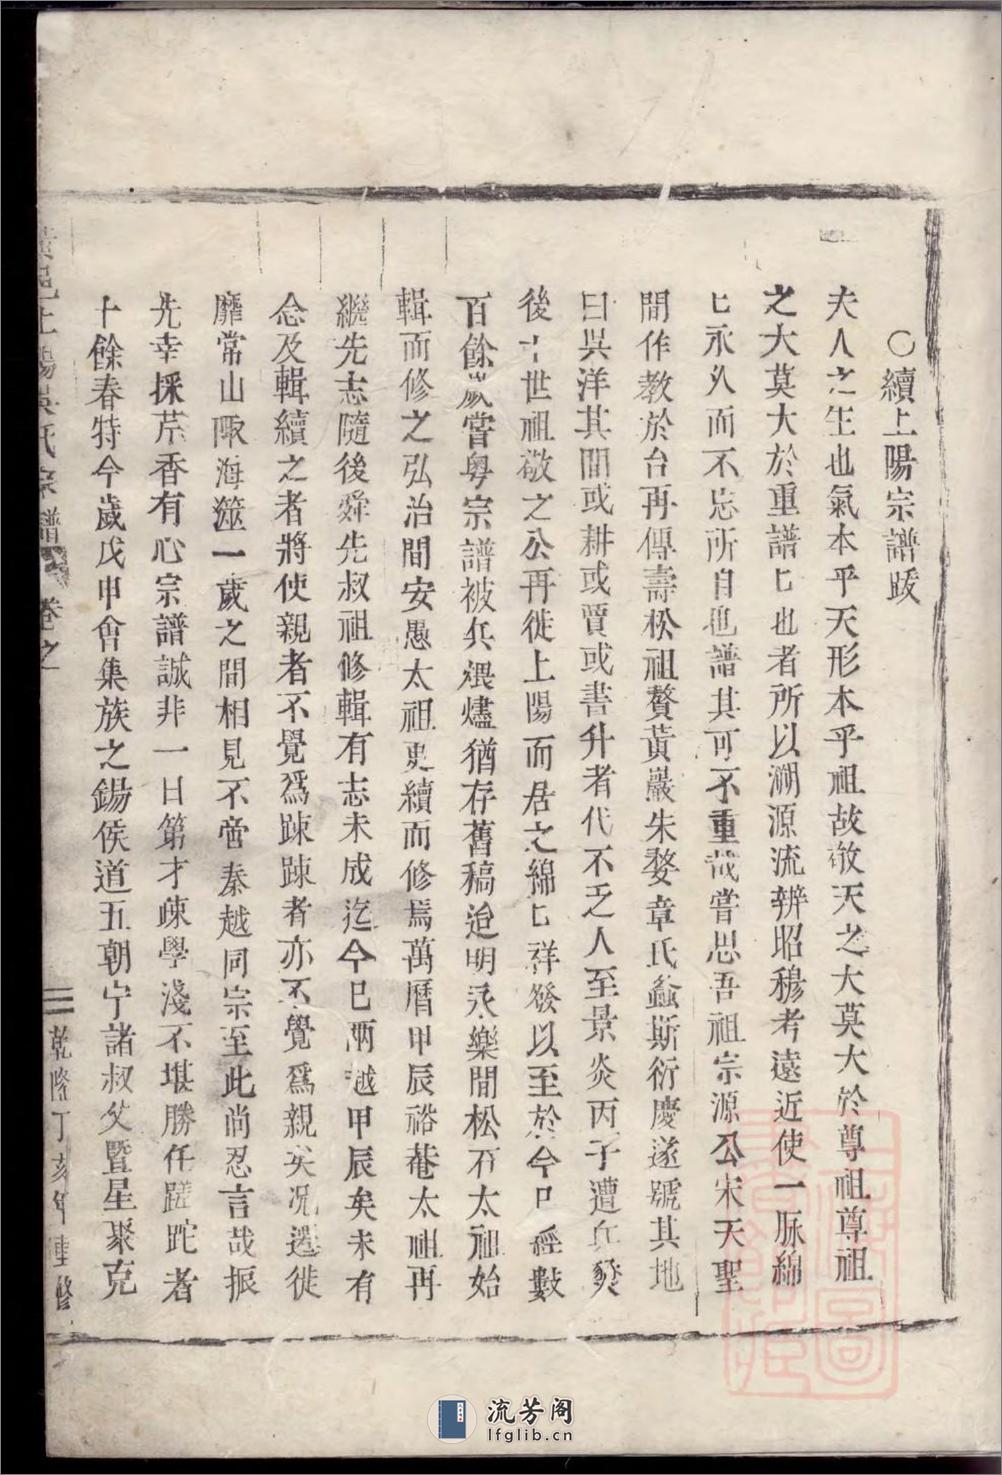 ○續上陽宗譜跋
夫人之生也氣本乎天形本乎祖故敬天之大莫大於尊祖尊祖
之大莫大於重譜匕也者所以溯源流辨昭穆考遠近使一脉綿
匕永久而不忘所自也譜其可不重哉嘗思吾祖宗源公宋天聖
間作教於台再傳壽松祖贅黃巖朱婺章氏螽斯衍慶遂號其地
曰吳洋其間或耕或賈或書升者代不乏人至景炎丙子遭兵燹
後十世祖敬之公再徙上陽而居之綿匕祥發以至於今已經數
百餘歲嘗粵宗譜被兵煨燼猶存舊稿迨明永樂間松石太祖始
輯而修之弘治間安愚太祖更續而修焉萬曆甲辰裕菴太祖再
繼先志隨後舜先叔祖修輯有志未成迄今已兩越甲辰矣未有
念及輯續之者將使親者不覺爲踈踈者亦不覺爲親矣況遷徙
靡常山陬海澨一歲之間相見不啻秦越同宗至此尚忍言哉振
先幸採芹香有心宗譜誠非一日第才疎學淺不堪勝任蹉跎者
十餘春特今歲戊申會集族之錫侯道五朝宁諸叔父暨星聚克
黃邑上陽吳氏宗譜 卷之 三 乾隆丁亥年重修
流芳阁
lfglib.cn